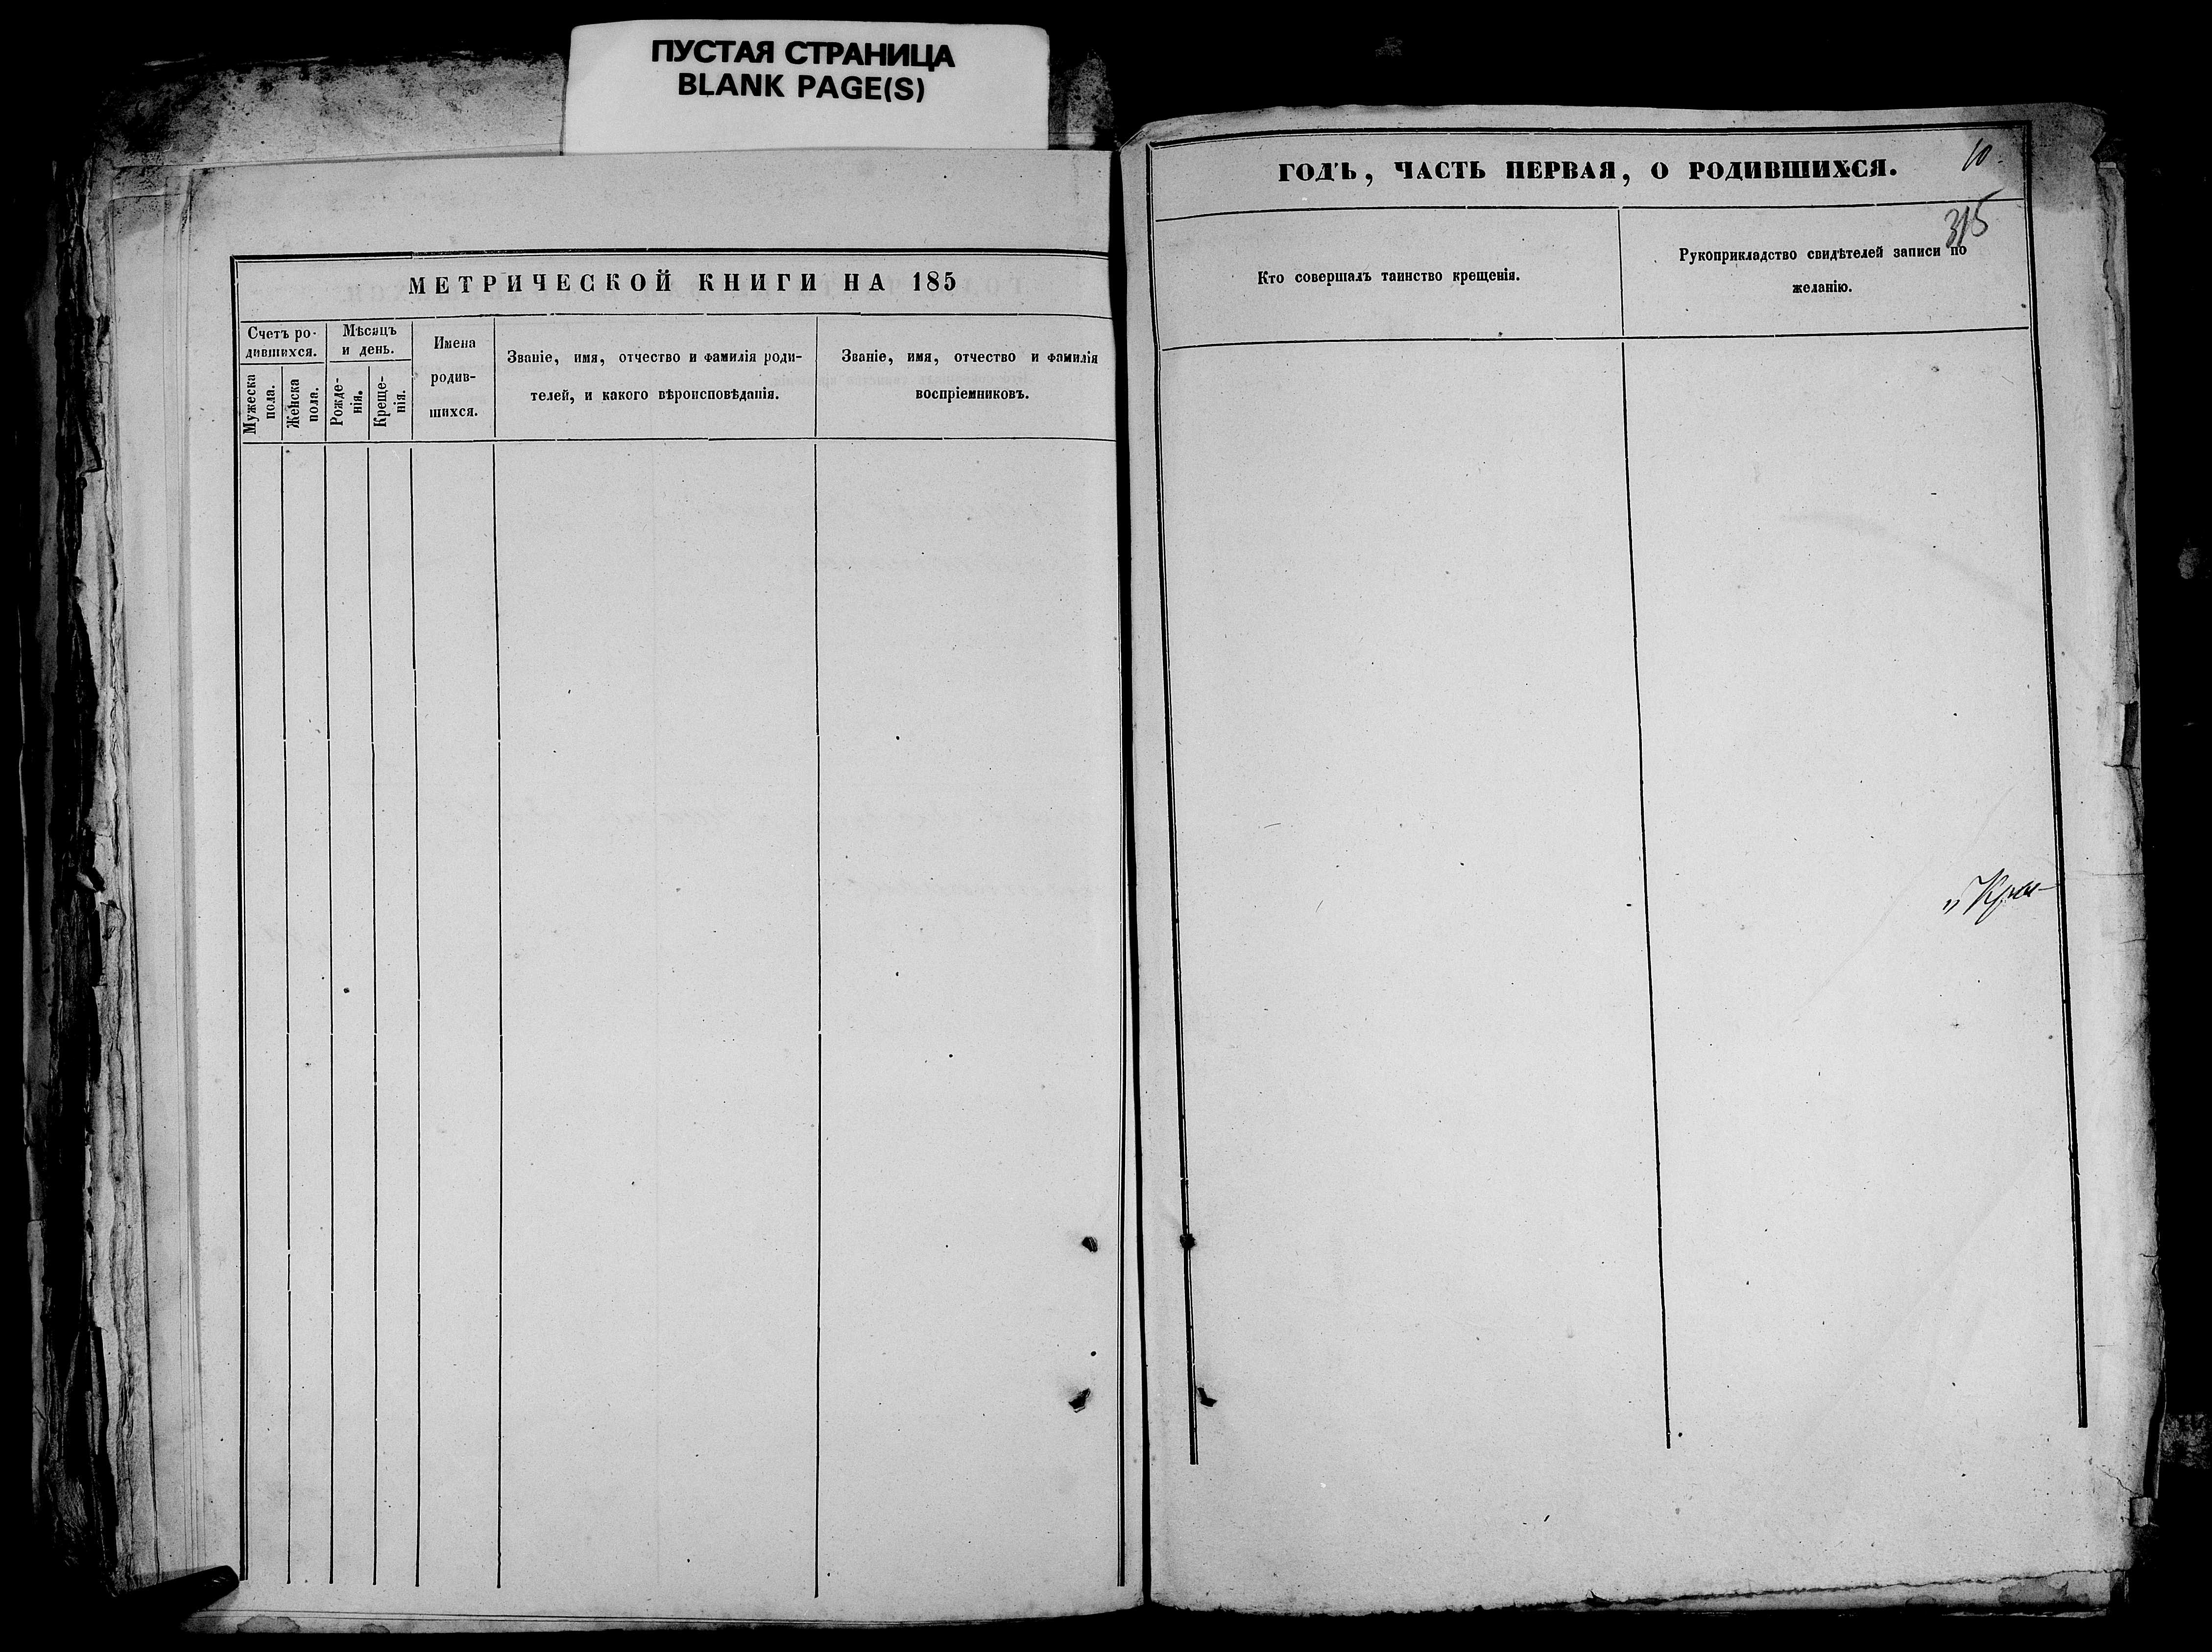 ПУСТАЯ СТРАНИЦА
BLANK PAGE(S)
МЕТРИЧЕСКОЙ КНИГИ НА 185
Счетъ ро-
дившихся.
Мужеска
пола.
Женска
пола.
Мѣсяцъ
и день.
Рожде-
нія.
Креще-
нія.
Имена
родив-
шихся.
Званіе, имя, отчество и фамилія роди-
телей, и какого вѣроисповѣданія.
Званіе, имя, отчество и фамилія
воспріемниковъ.
ГОДЪ, ЧАСТЬ ПЕРВАЯ, О РОДИВШИХСЯ.
10.
315
Кто совершалъ таинство крещенія.
Рукоприкладство свидѣтелей записи по
желанію.